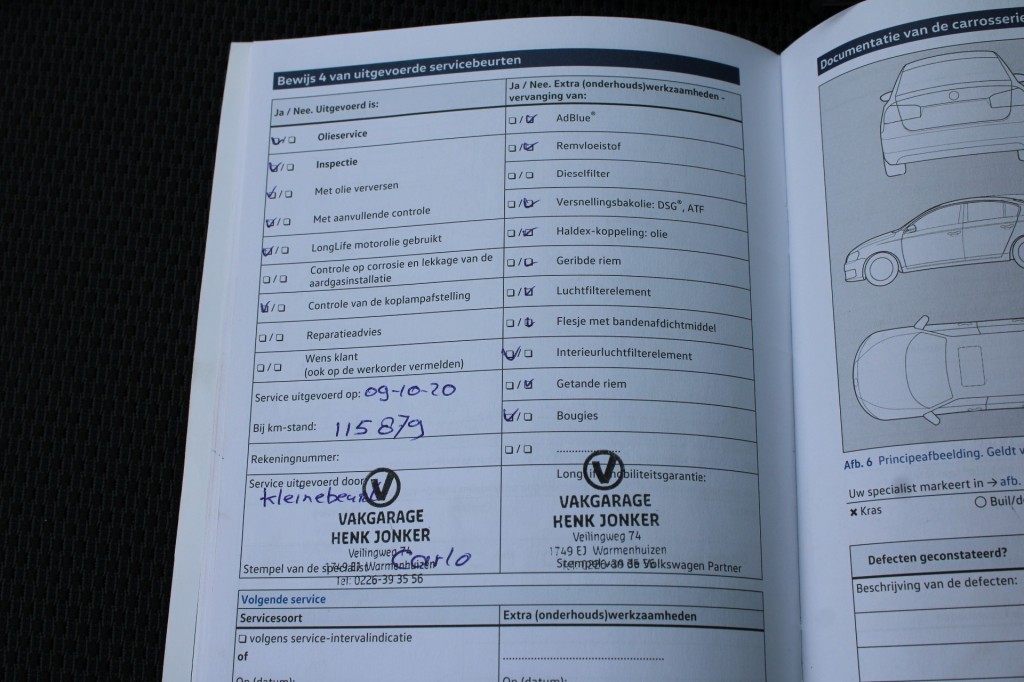 Bewijs 4 van uitgevoerde servicebeurten
Ja / Nee. Uitgevoerd is:
Olieservice
Inspectie
Met olie verversen
Met aanvullende controle
LongLife motorolie gebruikt
Controle op corrosie en lekkage van de
aardgasinstallatie
Controle van de koplampafstelling
Reparatieadvies
Wens klant
(ook op de werkorder vermelden)
Service uitgevoerd op: 09-10-20
Bij km-stand: 115879
Rekeningnummer:
Service uitgevoerd door:
kleinebeurt
V
VAKGARAGE
HENK JONKER
Veilingweg 74
1749 EJ Warmenhuizen
Carlo
Stempel van de specialist
Tel: 0226-39 35 56
Ja / Nee. Extra (onderhouds)werkzaamheden -
vervanging van:
AdBlue®
Remvloeistof
Dieselfilter
Versnellingsbakolie: DSG®, ATF
Haldex-koppeling: olie
Geribde riem
Luchtfilterelement
Flesje met bandenafdichtmiddel
Interieurluchtfilterelement
Getande riem
Bougies
LongLife mobiliteitsgarantie:
V
VAKGARAGE
HENK JONKER
Veilingweg 74
1749 EJ Warmenhuizen
Tel: 0226-39 35 56
Stempel van de Volkswagen Partner
Volgende service
Servicesoort
Extra (onderhouds)werkzaamheden
volgens service-intervalindicatie
of
Op (datum):
Op (datum):
Documentatie van de carrosserie
Afb. 6 Principeafbeelding. Geldt
Uw specialist markeert in → afb.
Kras
Buil/d
Defecten geconstateerd?
Beschrijving van de defecten: